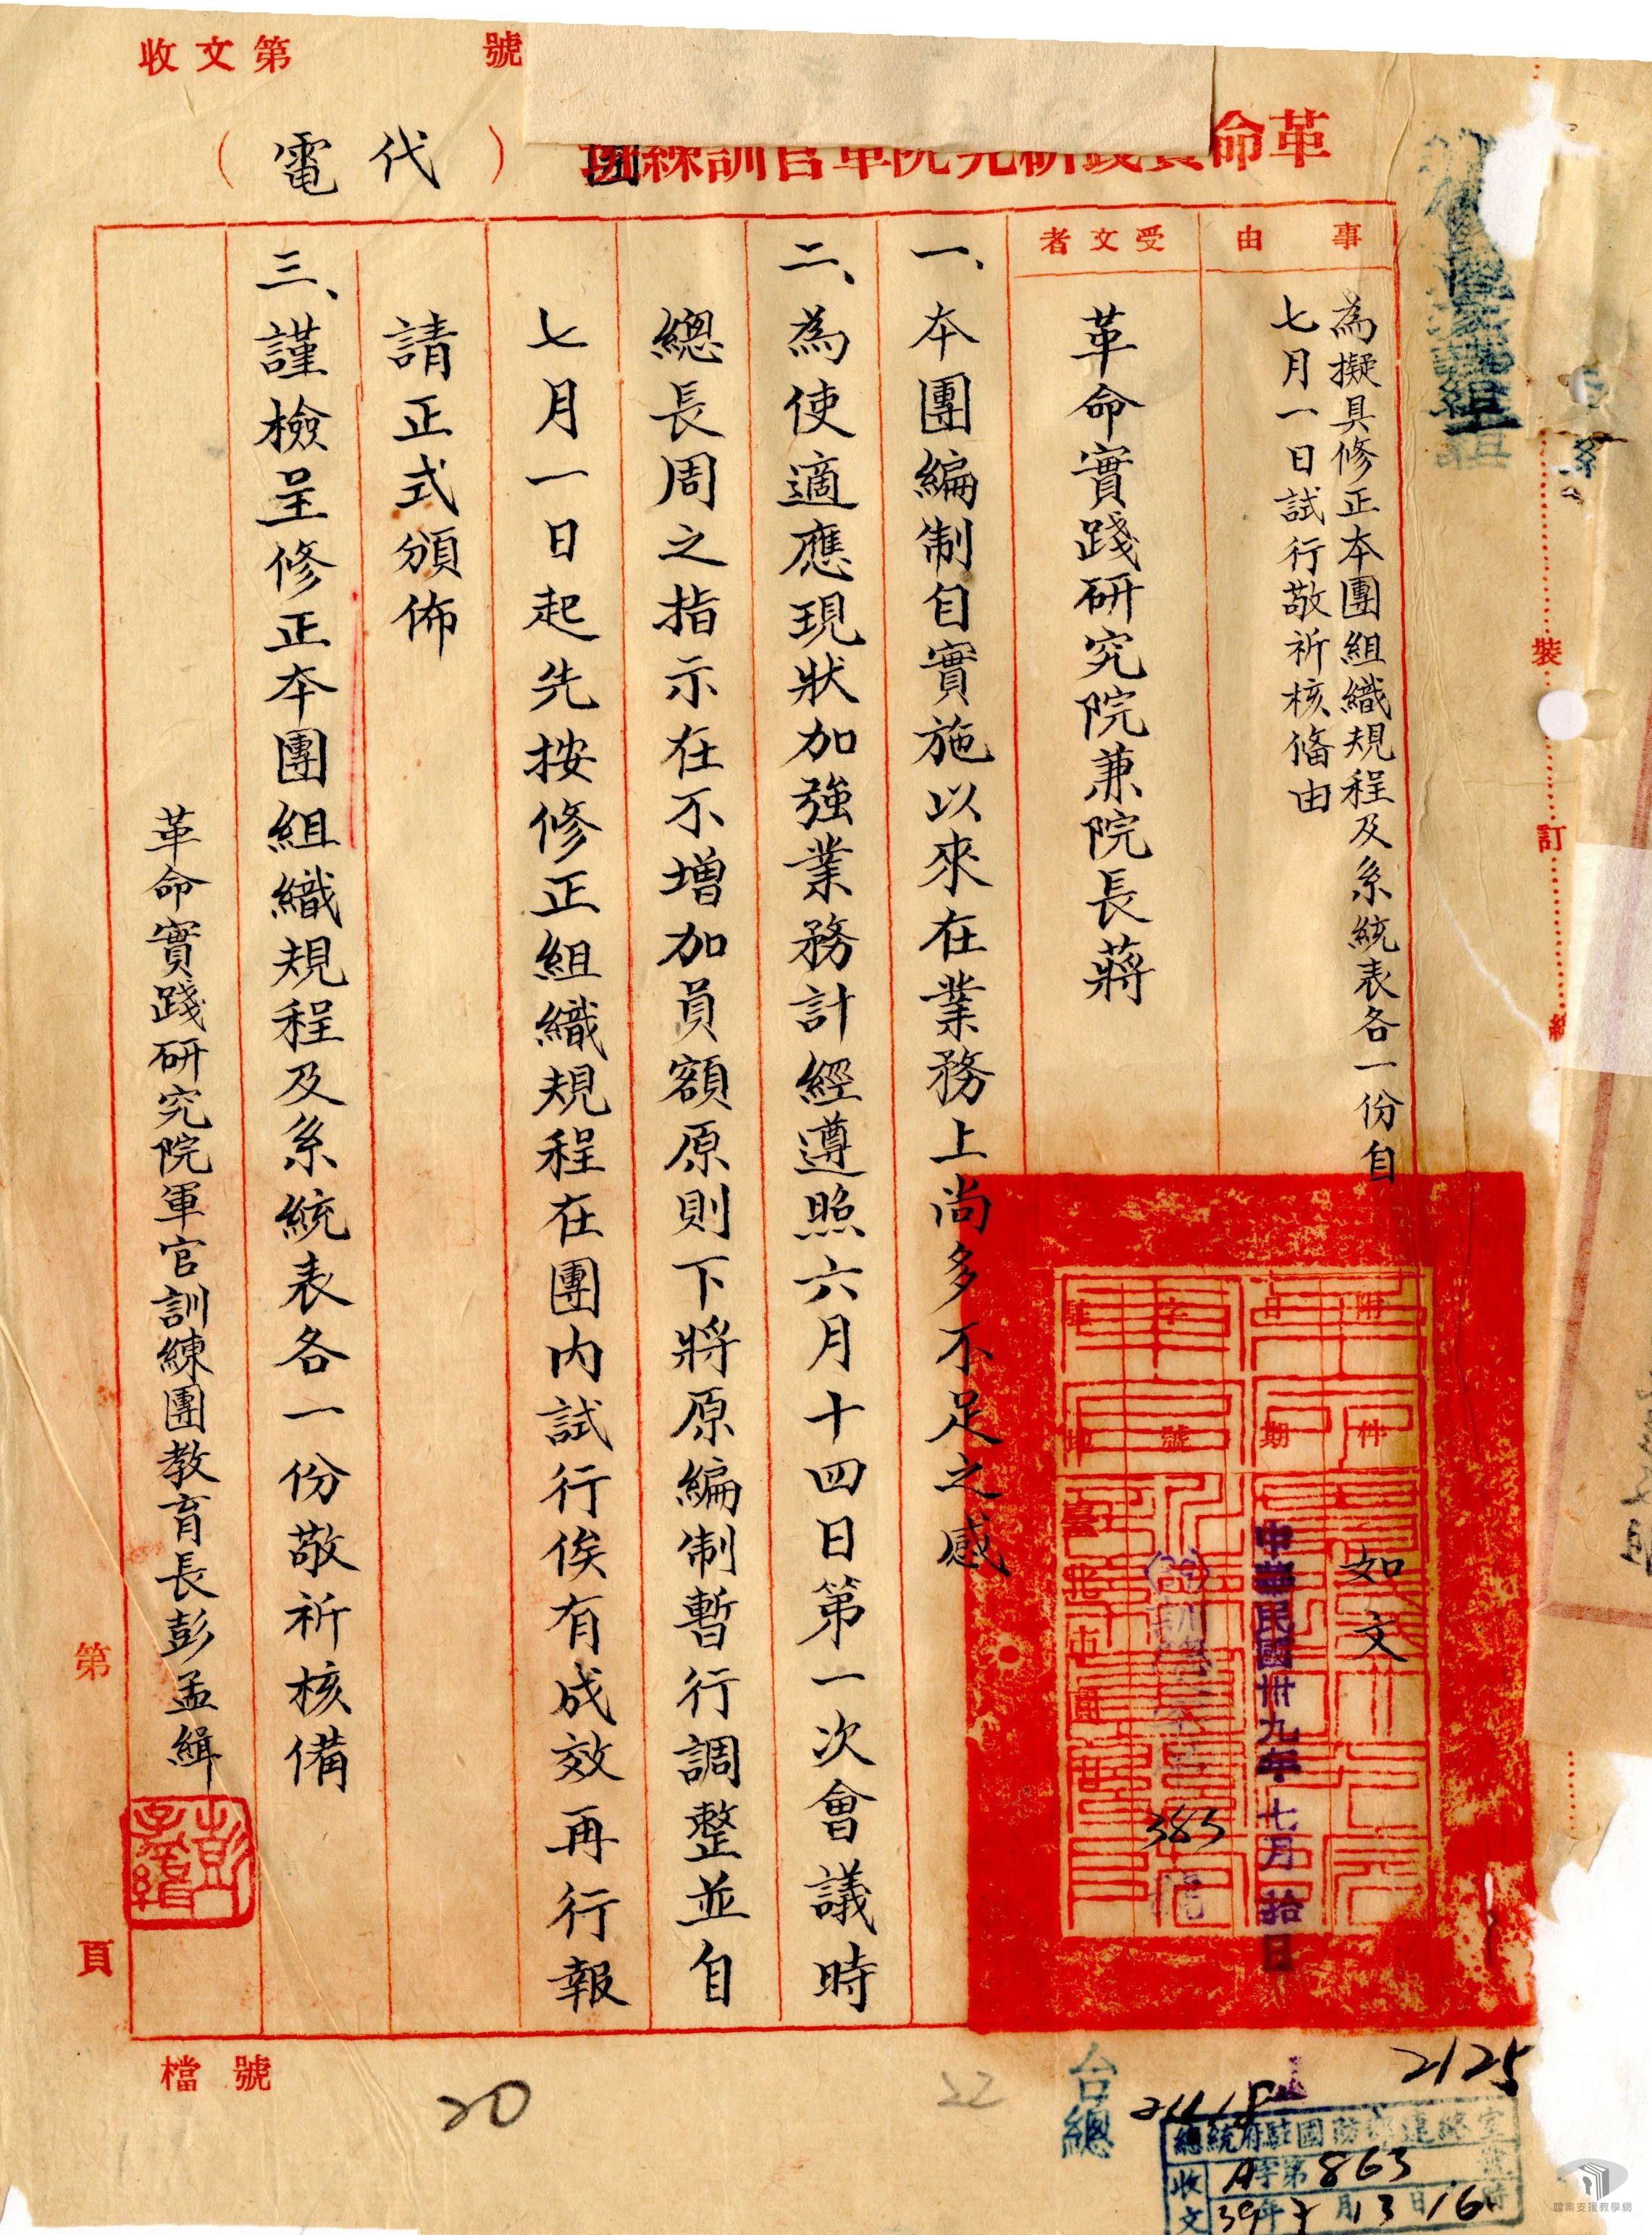 收文第 號
革命實踐研究院軍官訓練團
（代電）
事由
為擬具修正本團組織規程及系統表各一份自
七月一日試行敬祈核備由
受文者
革命實踐研究院兼院長蔣
附件
如文
日期
中華民國卅九年七月拾日
字號
383
駐地
臺北市
一、本團編制自實施以來在業務上尚多不足之感
二、為使適應現狀加強業務計經遵照六月十四日第一次會議時
總長周之指示在不增加員額原則下將原編制暫行調整並自
七月一日起先按修正組織規程在團內試行俟有成效再行報
請正式頒佈
三、謹檢呈修正本團組織規程及系統表各一份敬祈核備
革命實踐研究院軍官訓練團教育長彭孟緝
彭孟緝
第
頁
裝
訂
線
檔號
20
22
台總
2125
總統府駐國防部連絡室
收文
A字第863號
39年7月13日16時
檔案支援教學網